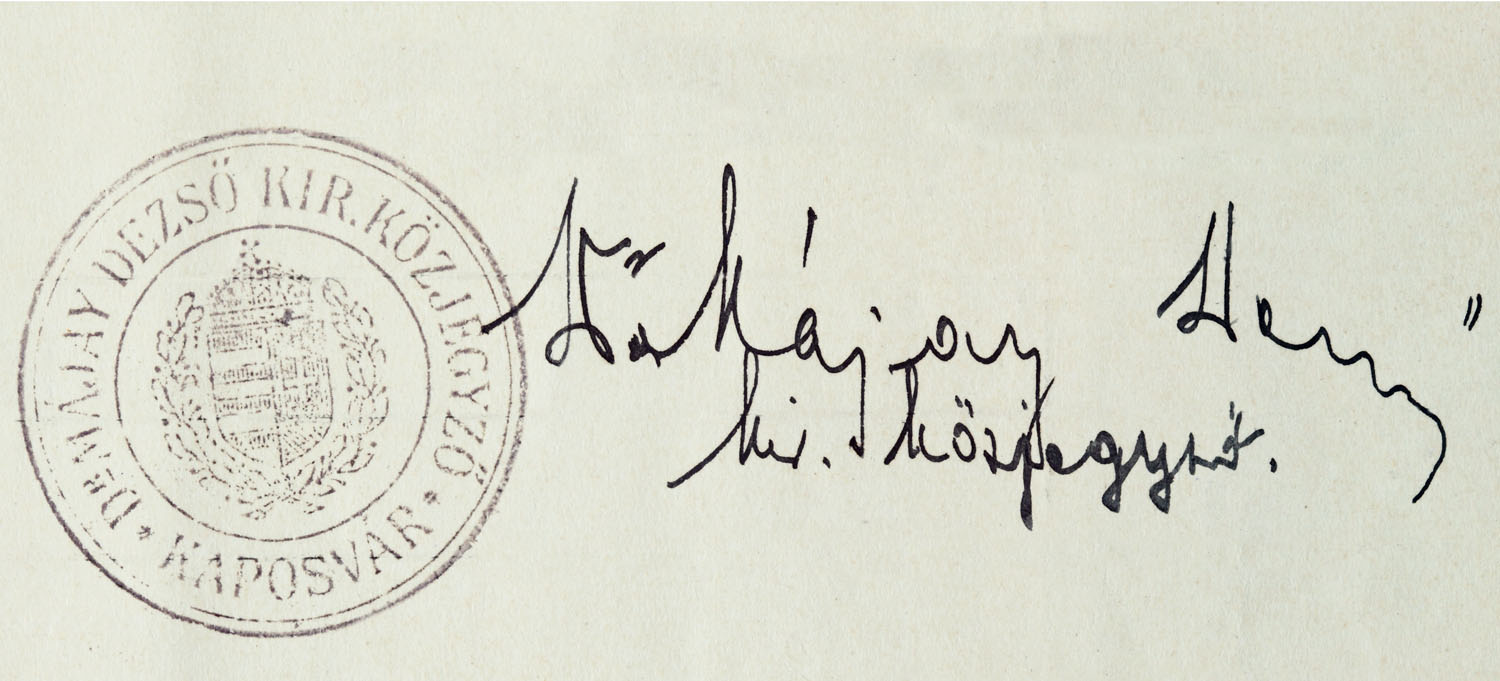 Dr MÁJAY DEZSŐ KIR. KÖZJEGYZŐ
* KAPOSVÁR *
Dr Májay Dezső
kir. közjegyző.